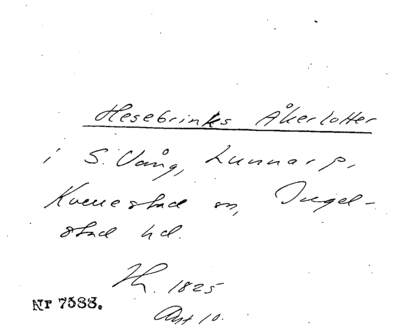 Hesebrinks Åkerlotter
i S. Vång, Lunnarp,
Kverrestad sn, Ingel-
stad hd.
Th. 1825
Akt 10.
Nr 7588.